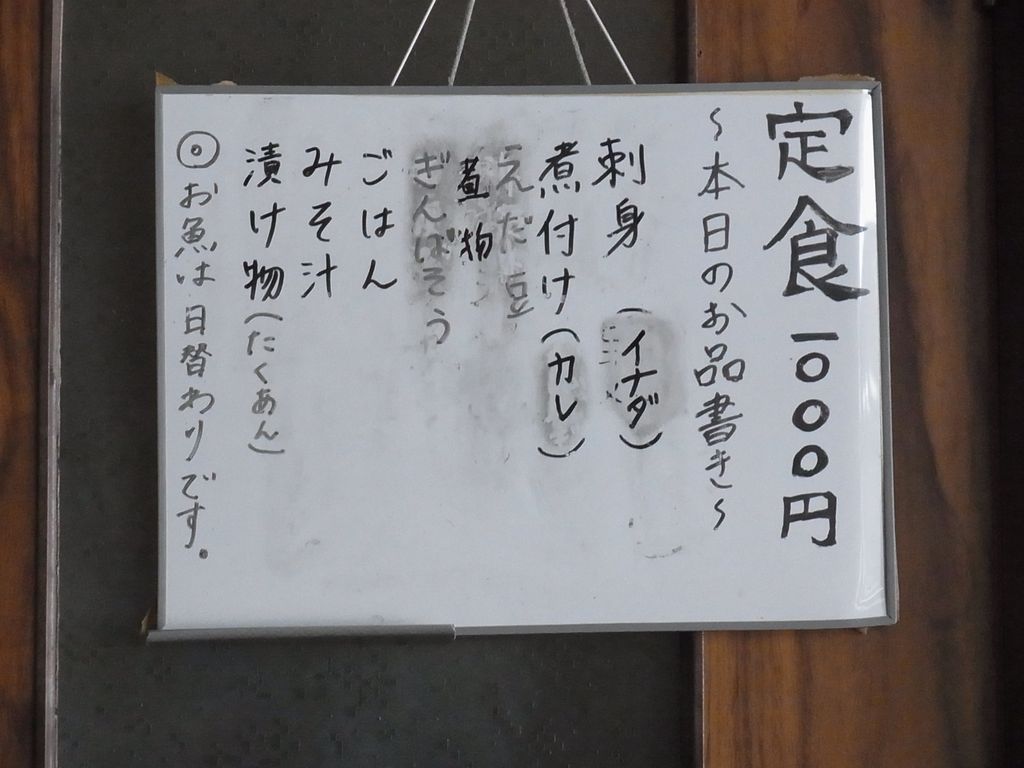 定食 一〇〇〇円
～本日のお品書き～
刺身 (イナダ)
煮付け(カレ)
えだ豆
煮物
ぎんばそう
ごはん
みそ汁
漬け物(たくあん)
◎お魚は日替わりです。